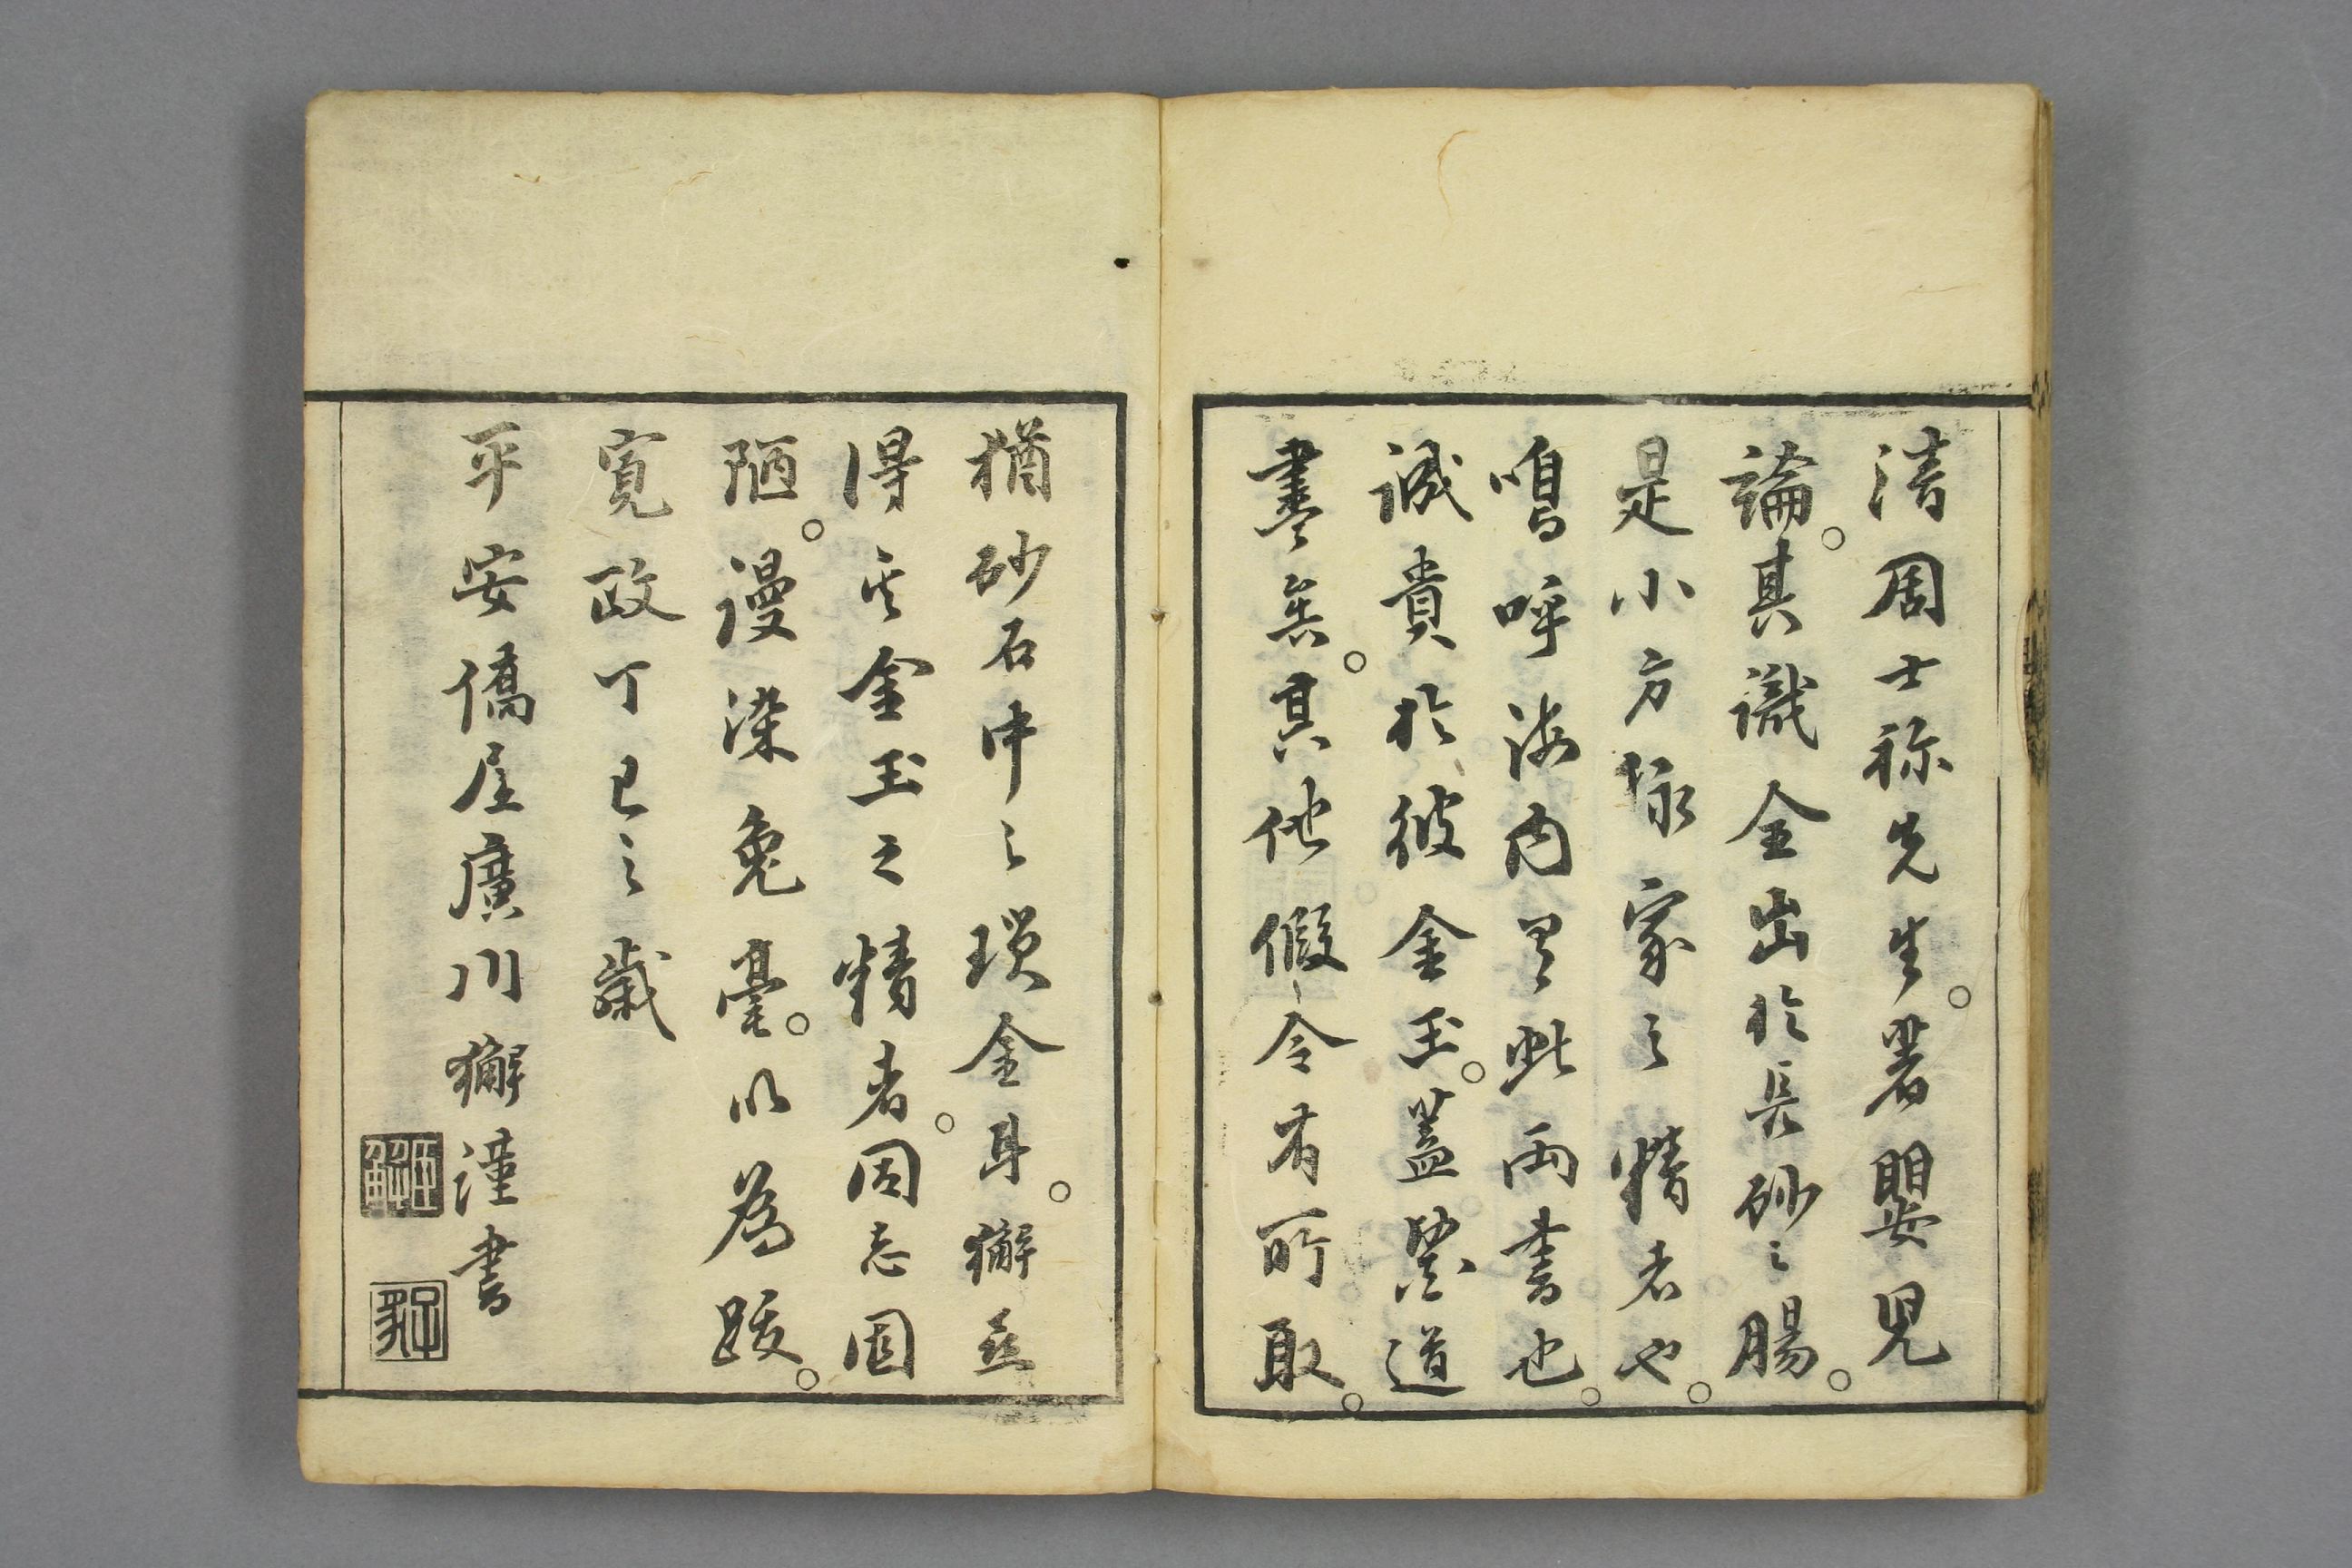 清周士禰先生。著嬰児
論。其識全出於長砂之腸。
是小方脉家之精者也。
嗚呼海内只此両書也。
誠貴於彼金玉。蓋醫道
書無。其他假令有所取。
猶砂石中之瑣金耳。獬並
得其金玉之精者。因忘固
陋。謾染兔毫。以為跋。
寛政丁巳之歳
平安僑居廣川獬謹書